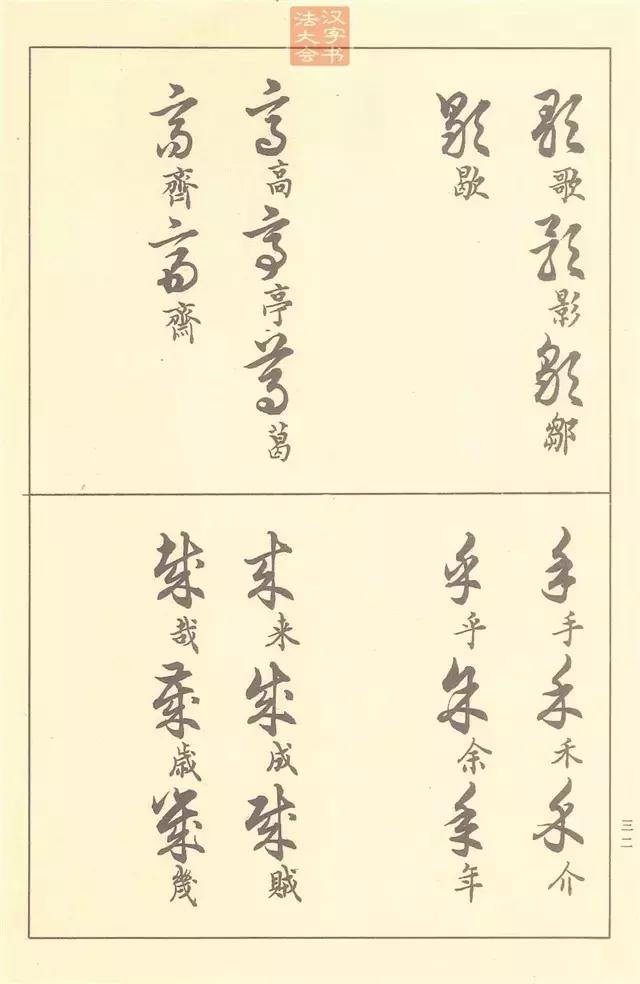 汉字书
法大会
歌 影 鄒
歇
高 亭 葛
齊 齋
手 禾 介
乎 余 年
来 成 賊
哉 歳 幾
三二